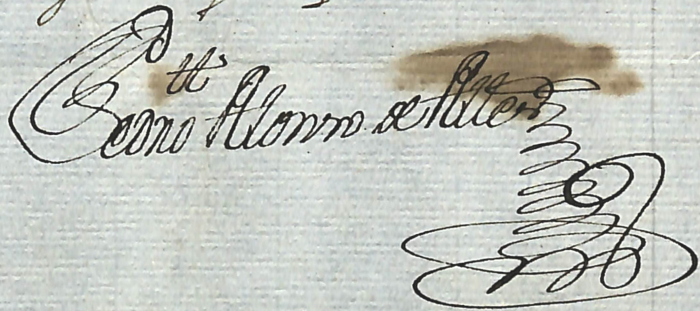 Pedro Alonso de Alles